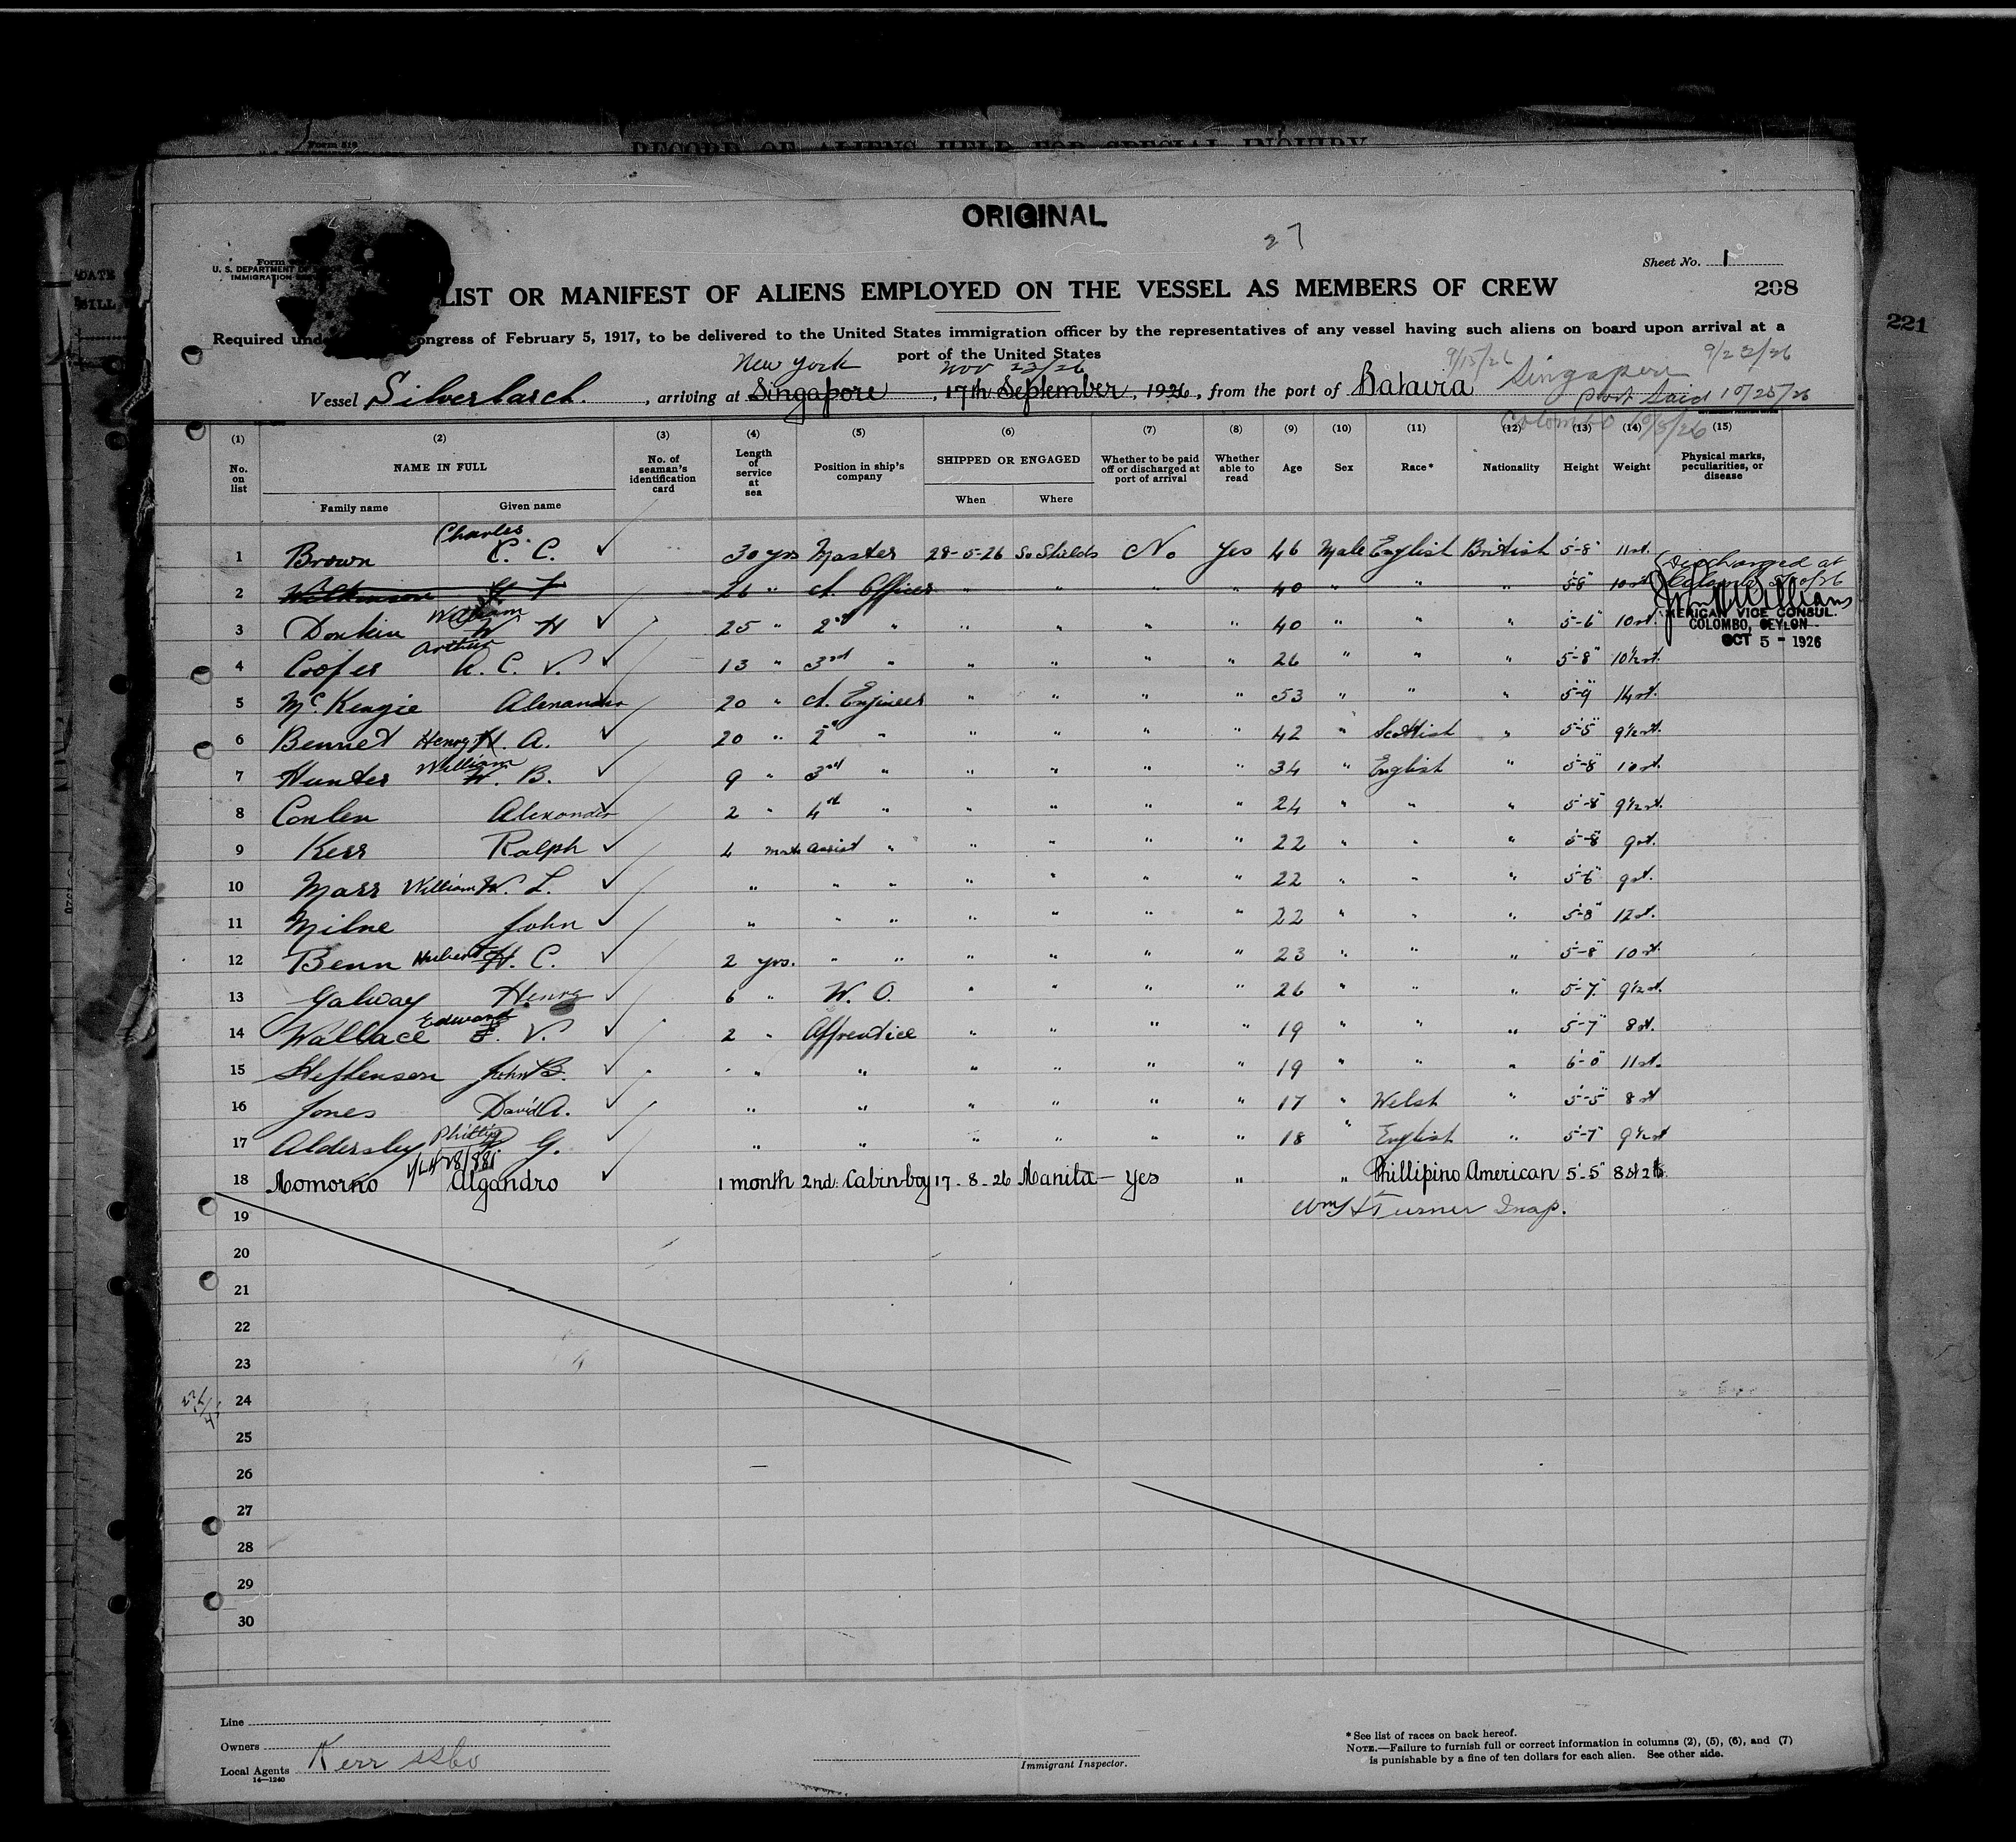 RECORD OF ALIENS HELD FOR SPECIAL INQUIRY
ORIGINAL
27
Form
U. S. DEPARTMENT OF LABOR
IMMIGRATION
Sheet No. 1
LIST OR MANIFEST OF ALIENS EMPLOYED ON THE VESSEL AS MEMBERS OF CREW
208
221
DATE
Required ongress of February 5, 1917, to be delivered to the United States immigration officer by the representatives of any vessel having such aliens on board upon arrival at a
port of the United States
New York Nov 23/26 9/15/26 Singapore 9/22/26
Vessel Silverlarch, arriving at Singapore, 17th September, 1926, from the port of Batavia Port Said 10/25/26
Colombo 10/5/26
(1) (2) (3) (4) (5) (6) (7) (8) (9) (10) (11) (12) (13) (14) (15)
No. on list NAME IN FULL No. of seaman's identification card Length of service at sea Position in ship's company SHIPPED OR ENGAGED Whether to be paid off or discharged at port of arrival Whether able to read Age Sex Race* Nationality Height Weight Physical marks, peculiarities, or disease
Family name Given name When Where
1 Brown Charles C. C. 30 yrs Master 28-5-26 So Shields No Yes 46 Male English British 5'-8" 11 st.
2 Wilkinson 26 " Ch. Officer " " " " 40 " " " 5'-8" 10 st Discharged at Colombo 5/10/26
3 Donkin William W H 25 " 2nd " " " " " 40 " " " 5'-6" 10 st.
4 Cooper Arthur A. C. V. 13 " 3rd " " " " " 26 " " " 5'-8" 10½ st.
AMERICAN VICE CONSUL
COLOMBO, CEYLON
OCT 5 - 1926
5 McKenzie Alexander 20 " Ch. Engineer " " " " 53 " " " 5'-9" 14 st.
6 Bennet Henry H. A. 20 " 2nd " " " " " 42 " Scottish " 5'-5" 9½ st.
7 Hunter William W. B. 9 " 3rd " " " " " 34 " English " 5'-8" 10 st.
8 Conlen Alexander 2 " 4th " " " " " 24 " " " 5'-8" 9½ st.
9 Kerr Ralph 4 mnths Assist " " " " " 22 " " " 5'-8" 9 st.
10 Marr William W. L. " " " " " " " 22 " " " 5'-6" 9 st.
11 Milne John " " " " " " " 22 " " " 5'-8" 12 st.
12 Benn Hubert H. C. 2 yrs. " " " " " " 23 " " " 5'-8" 10 st.
13 Galway Henry 6 " W. O. " " " " 26 " " " 5'-7" 9½ st.
14 Wallace Edward E. V. 2 " Apprentice " " " " 19 " " " 5'-7" 8 st.
15 Stephenson John B. " " " " " " " 19 " " " 6'-0" 11 st.
16 Jones David A. " " " " " " 17 " Welsh " 5'-5" 8 st
17 Aldersley Phillip P. G. " " " " " " 18 " English " 5'-7" 9½ st
18 Momorno Algandro 1 month 2nd. Cabin-boy 17-8-26 Manila - yes " " Phillipino American 5'-5" 8 st 2
19 Wm Turner Insp.
20
21
22
23
24
25
26
27
28
29
30
Line
Owners
Local Agents Kerr SS Co
14—1240
Immigrant Inspector.
* See list of races on back hereof.
NOTE.—Failure to furnish full or correct information in columns (2), (5), (6), and (7)
is punishable by a fine of ten dollars for each alien. See other side.